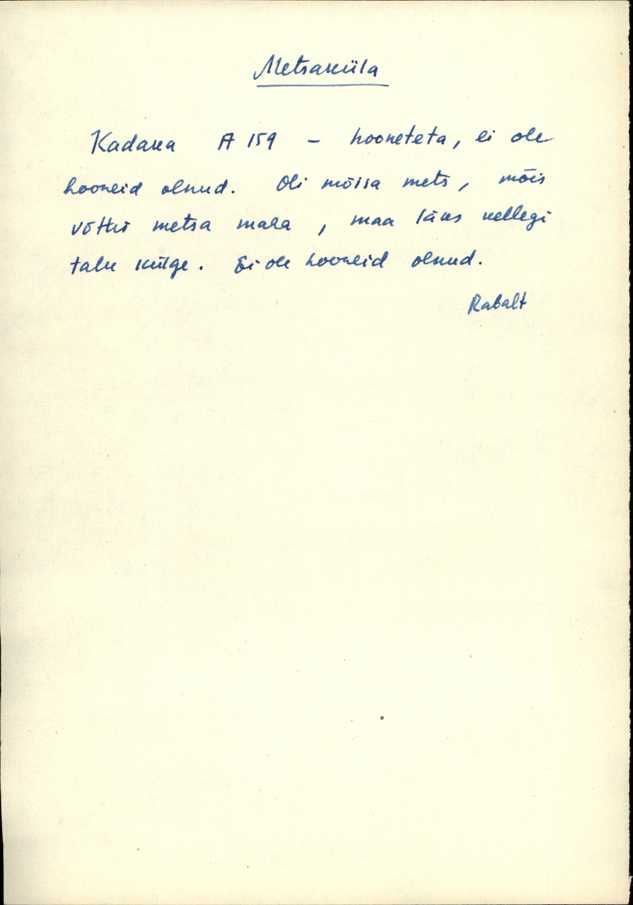 Metsaküla
Kadaka A 159 – hooneteta, ei ole
hooneid olnud. Oli mõisa mets, mõis
võttis metsa maha, maa läks kellegi
talu külge. Ei ole hooneid olnud.
Rabalt